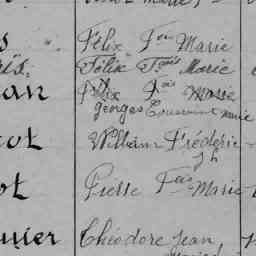 s Félix Fois Marie
ris. Félix Fois Marie
an Félix Fois Marie
Georges Toussaint Marie
cot William Frédéric
Jh
ot Pierre Fois Marie
urier Théodore Jean